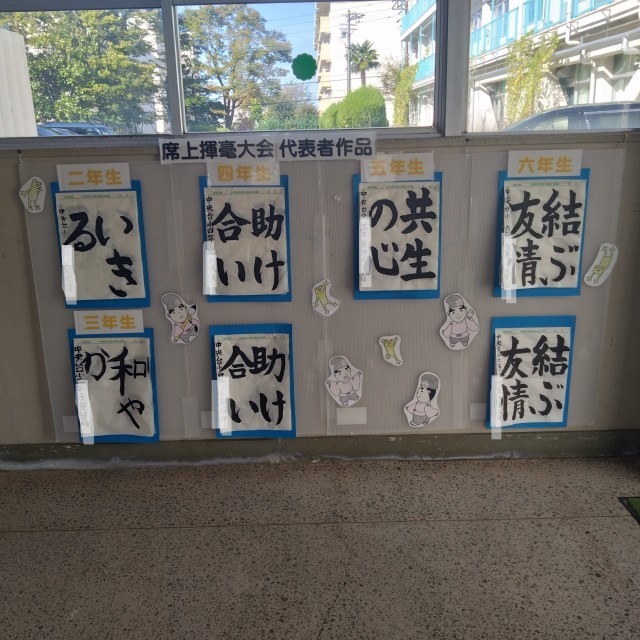 席上揮毫大会 代表者作品
二年生
いき
る
四年生
助け
合い
五年生
共生
の心
六年生
結ぶ
友情
三年生
和や
か
助け
合い
結ぶ
友情